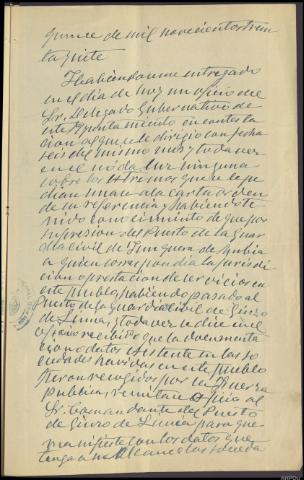 quince de mil novecientos trein
ta y siete
Habiendoseme entregado
en el dia de hoy un oficio del
Sr. Delegado Gubernativo de
este Ayuntamiento en contesta
cion al que se le dirigio con fecha
seis del mismo mes y toda vez
en el no da luz ninguna
sobre los extremos que se le pe
dian en una carta orden
de su referencia y habiendo te
nido conocimiento de que por
supresion del Puesto de la Guar
dia Civil de Junquera de Ambia
a quien correspondia la jurisdi
cion o prestacion de servicios en
este pueblo, habiendo pasado al
Puesto de la Guardia Civil de Ginzo
de Limia, y toda vez se dice en el
oficio recibido que la documenta
cion o datos existente en las so
ciedades havidas en este pueblo
fueron recogidos por la Fuerza
publica, remitase oficio al
Sr. Comandante del Puesto
de Ginzo de Limia para que
manifieste con los datos que
tenga a su alcance los